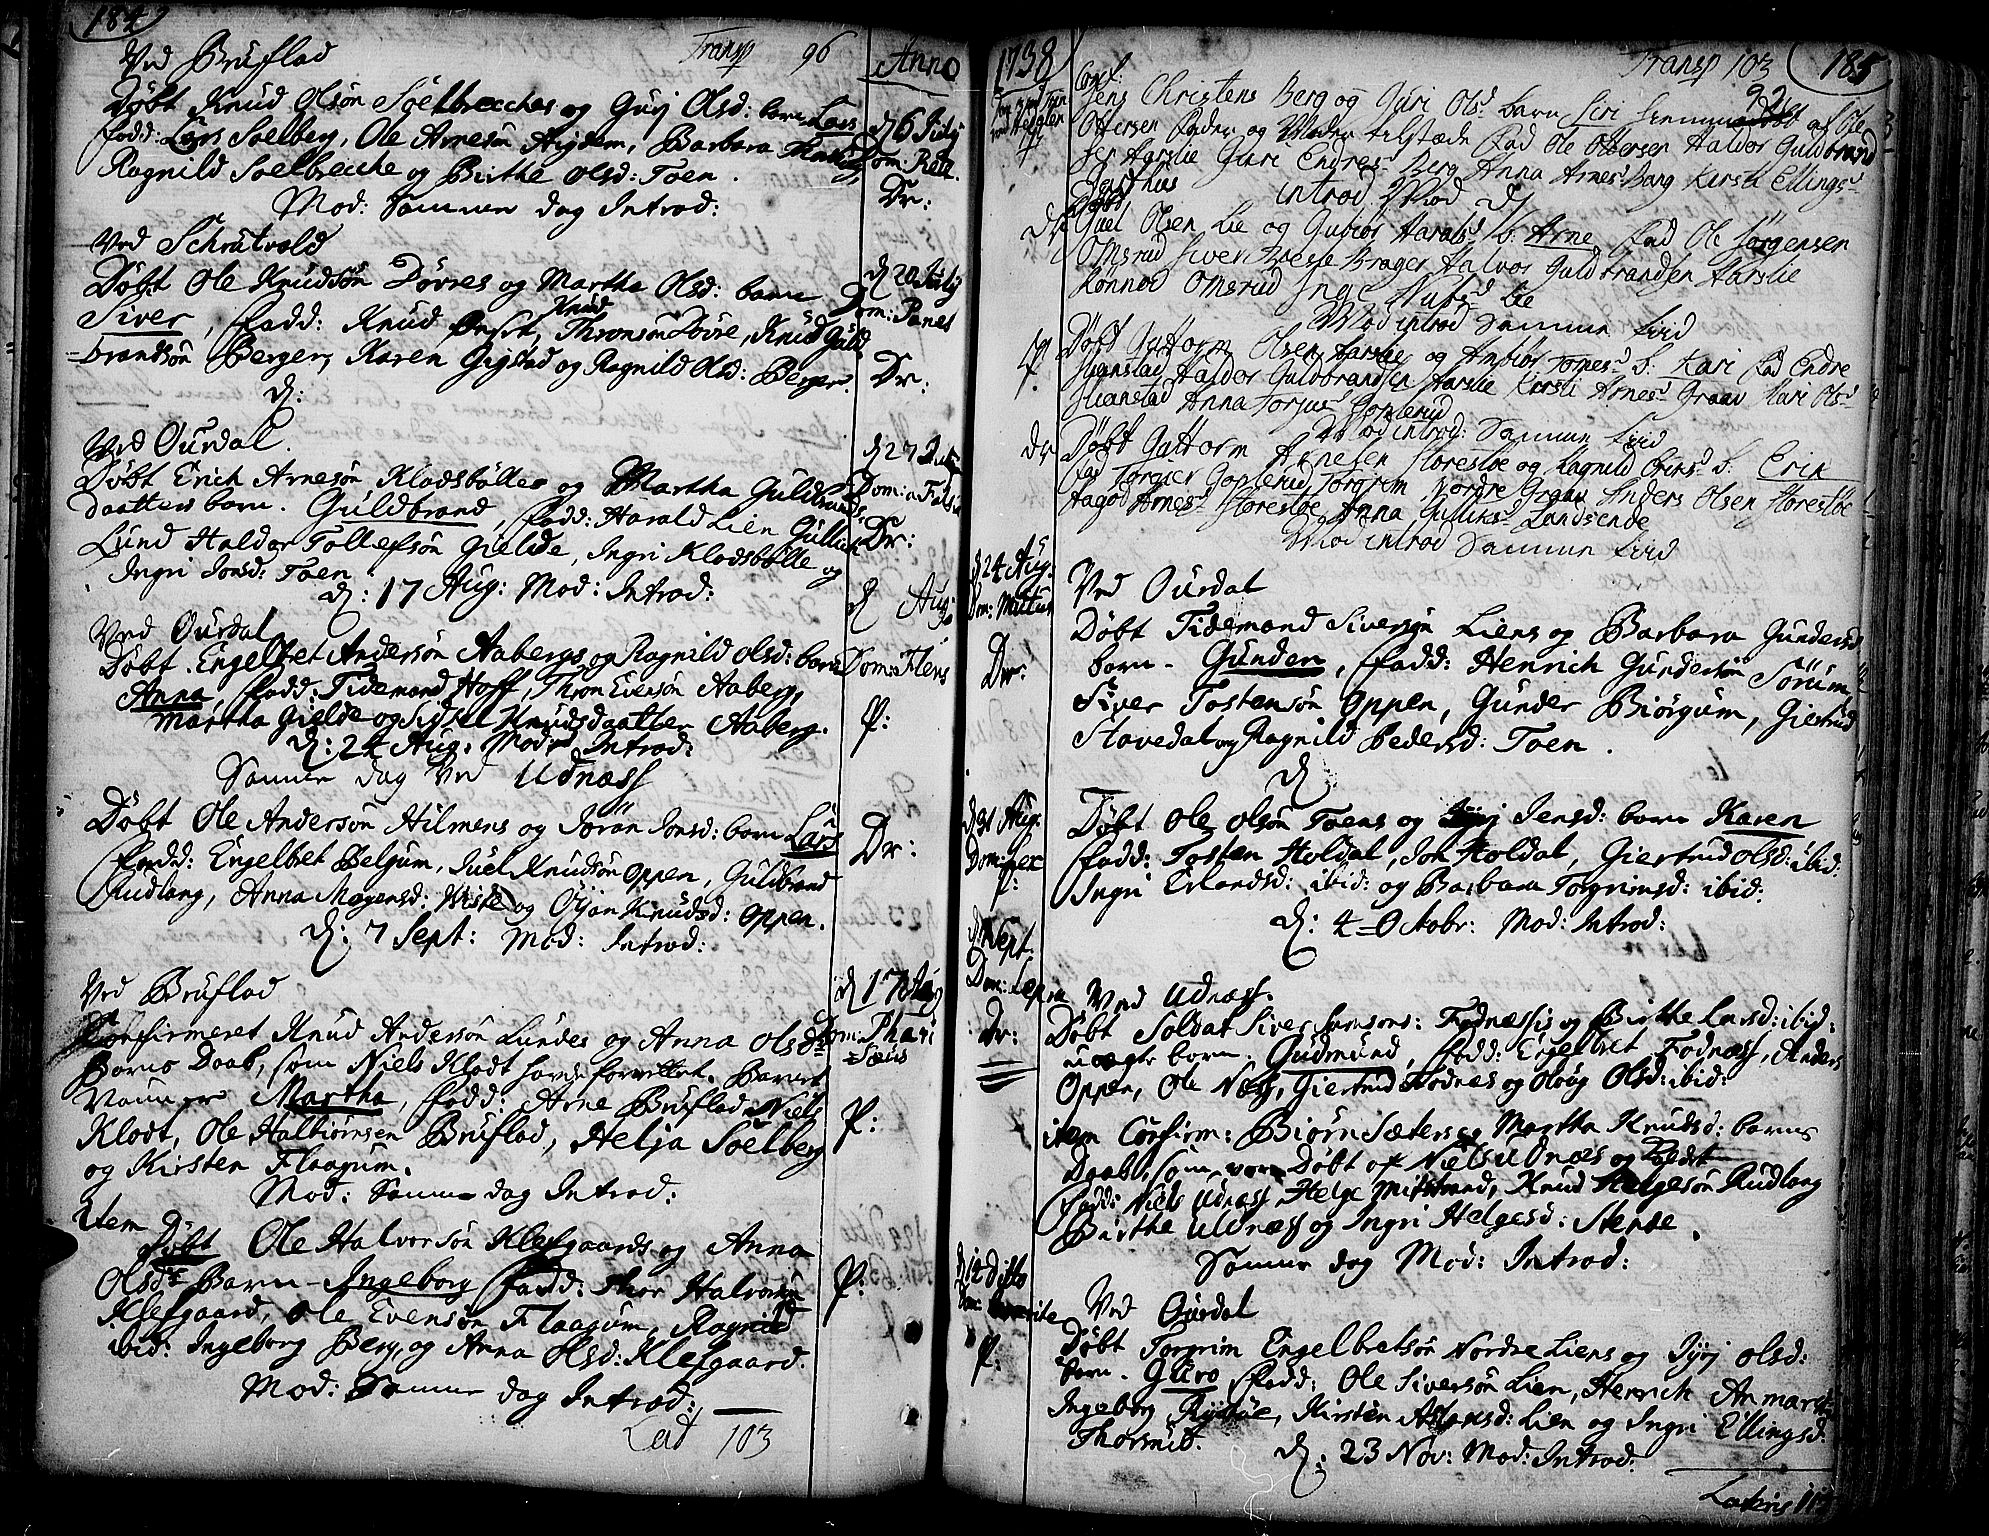 184
Transp 96
Anno
Ved Bruflad
Døbt Knud Olsøn Soelbrecches og Gurj Olsd: barn Lars
d 6 July
fadd: Lars Soelberg, Ole Arnesøn, Barbara
Dom:
Ragnild Soelbrecche og Birthe Olsd: Toen.
Dr:
Mod: Samme dag Introd:
Ved Schrutvold
Døbt Ole Knudsøn Døvres og Martha Olsd: barn
d 20 July
Siver, fadd: Knud, Knud Thronsøn Døvre, Knud Guld
Dom: Panes
-brandsøn Berger, Karen Gigstad og Ragnild Olsd: Berger.
Dr:
d:
Ved Ourdal.
d 27
Døbt Erich Arnesøn Kladsbølles og Martha Guldbrands
Dom:
daatters barn. Guldbrand, fadd: Harald Lien Gullich
Dr:
Lund Haldor Tollefsøn Gielde, Ingri Kladsbølle og
Ingri Jonsd: Toen
d: 17 Aug: Mod: Introd:
d Aug:
Ved Ourdal
Døbt. Engelbet Andersøn Aabergs og Ragnild Olsd: barn
Dom: Flens
Anna fadd: Tidemand Hoff, Thron Evensøn Aaberg,
Martha Gielde og Sidsel Knudsdaatter Aaberg.
P:
d: 24 Aug: Mod: Introd:
Samme dag Ved Udnæss
Døbt Ole Andersøn Hilmens og Jøran Jonsd: barn Lars
Dr:
fadd: Engelbet Belgum, Juel Knudsøn Oppen, Guldbrand
Rudlang, Anna Mogensd: Wiste og Oljan Knudsd: Oppen.
d: 7 Sept: Mod: Introd:
Ved Bruflad
d 17 Aug
Confirmeret Knud Andersøn Lundes og Anna Olsdr
Dom: Phari
Sæus
Barns Daab, som Niels Klodt hafde forrettet. Barnet
Martha, fadd: Arne Bruflad, Niels
Klodt, Ole Halbiørnsen Bruflad, Helja Soelberg
P:
og Kirsten Flaagum.
Mod: Samme dag Introd:
Item
Døbt Ole Halvorsøn Klefgaards og Anna
Olsdr Barn - Ingeborg fadd: Thor Halvorsøn
P:
Klefgaard, Ole Evensøn Flaagum, Ragnild
ibid: Ingeborg Berg, og Anna Olsd: Klefgaard.
Mod: Samme dag Introd:
Lat 103
1738
Transp 103
185
92
Conf:
Jens Christens Berg og Guri Olsd barn Siri hiemme døbt af Ole
Ottersen Fader og Moder tilstæde Fad Ole Ottersen Haldor Guldbrand
sen Aarslie Guri Endresd Berg Anna Arnesd Berg Kersti Ellingsd
introd Mod d
Døbt
dr
Juel Olsen Lie og Gubiør Haralsd b. Arne Fad Ole Jørgensen
Omsrud Siver Brager Halvor Guldbrandsen Aarslie
Rønnod Omsrud Inge Nubsd Lie
Mod introd Samme tiid
P.
Døbt Guttorm Olsen Aarslie og Ambiør Tornesd b. Kari Fad Endre
Juanstad Haldor Guldbrandsen Aarslie Kersti Arnesd Graav Kari Olsd
Juanstad Anna Torjusd Goplerud
Mod introd: Samme tiid
dr
Døbt Guttorm Arnesen Storesløe og Ragnild Orinsd b. Erik
Fad Torgier Goplerud Torgrim Nordre Graav Anders Olsen Storesløe
Aagod Arnesd Storesløe Anna Gulliksd Landsende
Mod introd Samme tiid
d 24 Aug:
Ved Ourdal
Dom: Mutus
Døbt Tidemand Siversøn Liens og Barbara Gundersd
Dr:
barn - Gunder, fadd: Henrich Gundersøn Sørum,
Siver Tostensøn Oppen, Gunder Biørgum, Giertrud
Stavedal og Ragnild Pedersd: Toen.
d
d 31 Aug:
Døbt Ole Olsøn Toens og Jensd: barn Karen
Dom: Lex
fadd: Tosten Holdal, Jon Holdal, Giertrud Olsd: ibid:
P:
Ingri Erlandsd: ibid: og Barbara Torgrimsd: ibid:
d: 4 Octobr: Mod: Introd:
Sept.
Dom: Lepra
Ved Udnæss.
Dr:
Døbt Soldat Siver: Fodnæssis og Birthe Larsd: ibid:
uægte barn. Gudmund, fadd: Engelbret Fodnæss, Anders
Oppen, Ole Næss, Giertrud Fodnes og Oloug Olsd: ibid:
item Confirm: Biørn Sæters og Martha Knudsd: barns
Daab, som var Døbt af Niels Udnæs og
fadd: Niels Udnæss, Helge Midstrand, Knud Helgesøn Rudlang
Birthe Udnæss og Ingri Helgesd: Stende.
Samme dag Mod: Introd:
d 14 Dito
Ved Ourdal
P:
Døbt Torgrim Engelbretsøn Nordre Liens og Jyrj Olsd:
barn. Guro, fadd: Ole Siversøn Lien, Henrich
Ingeborg, Kirsten Aslaksd: Lien og Ingri Ellingsd:
Thorsrud.
d: 23 Nov: Mod: Introd:
Lateris